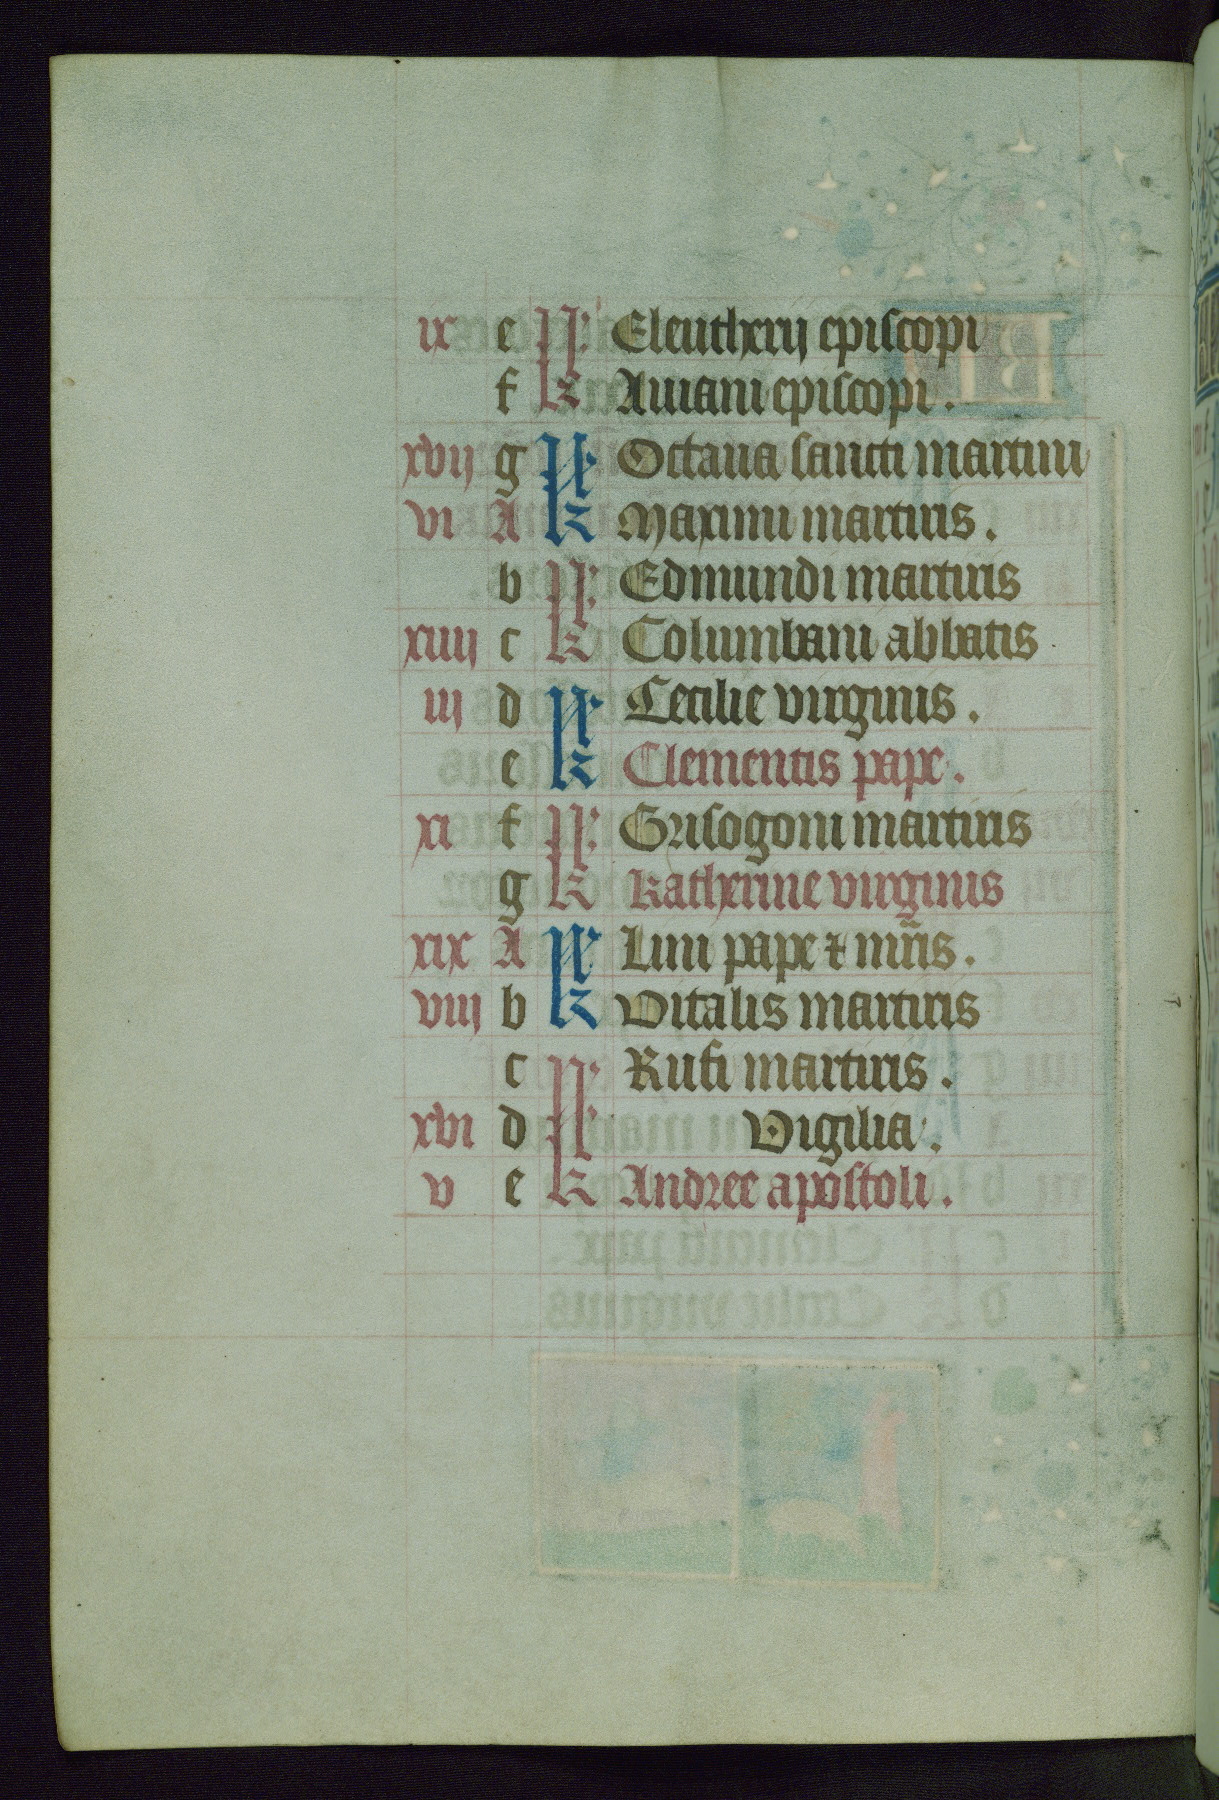 ix e kl Eleutherij episcopi
f Aniani episcopi.
xvij g kl Octaua sancti martini
vi A Maximi martiris.
b kl Edmundi martiris
xiiij c Columbani abbatis
iij d kl Cecilie virginis.
e Clementis pape.
xi f kl Grisogoni martiris
g katherine virginis
xix A kl Lini pape ⁊ mr̄is.
viij b Vitalis martiris
c kl Rufi martiris.
xvi d Vigilia.
v e Andree apostoli.